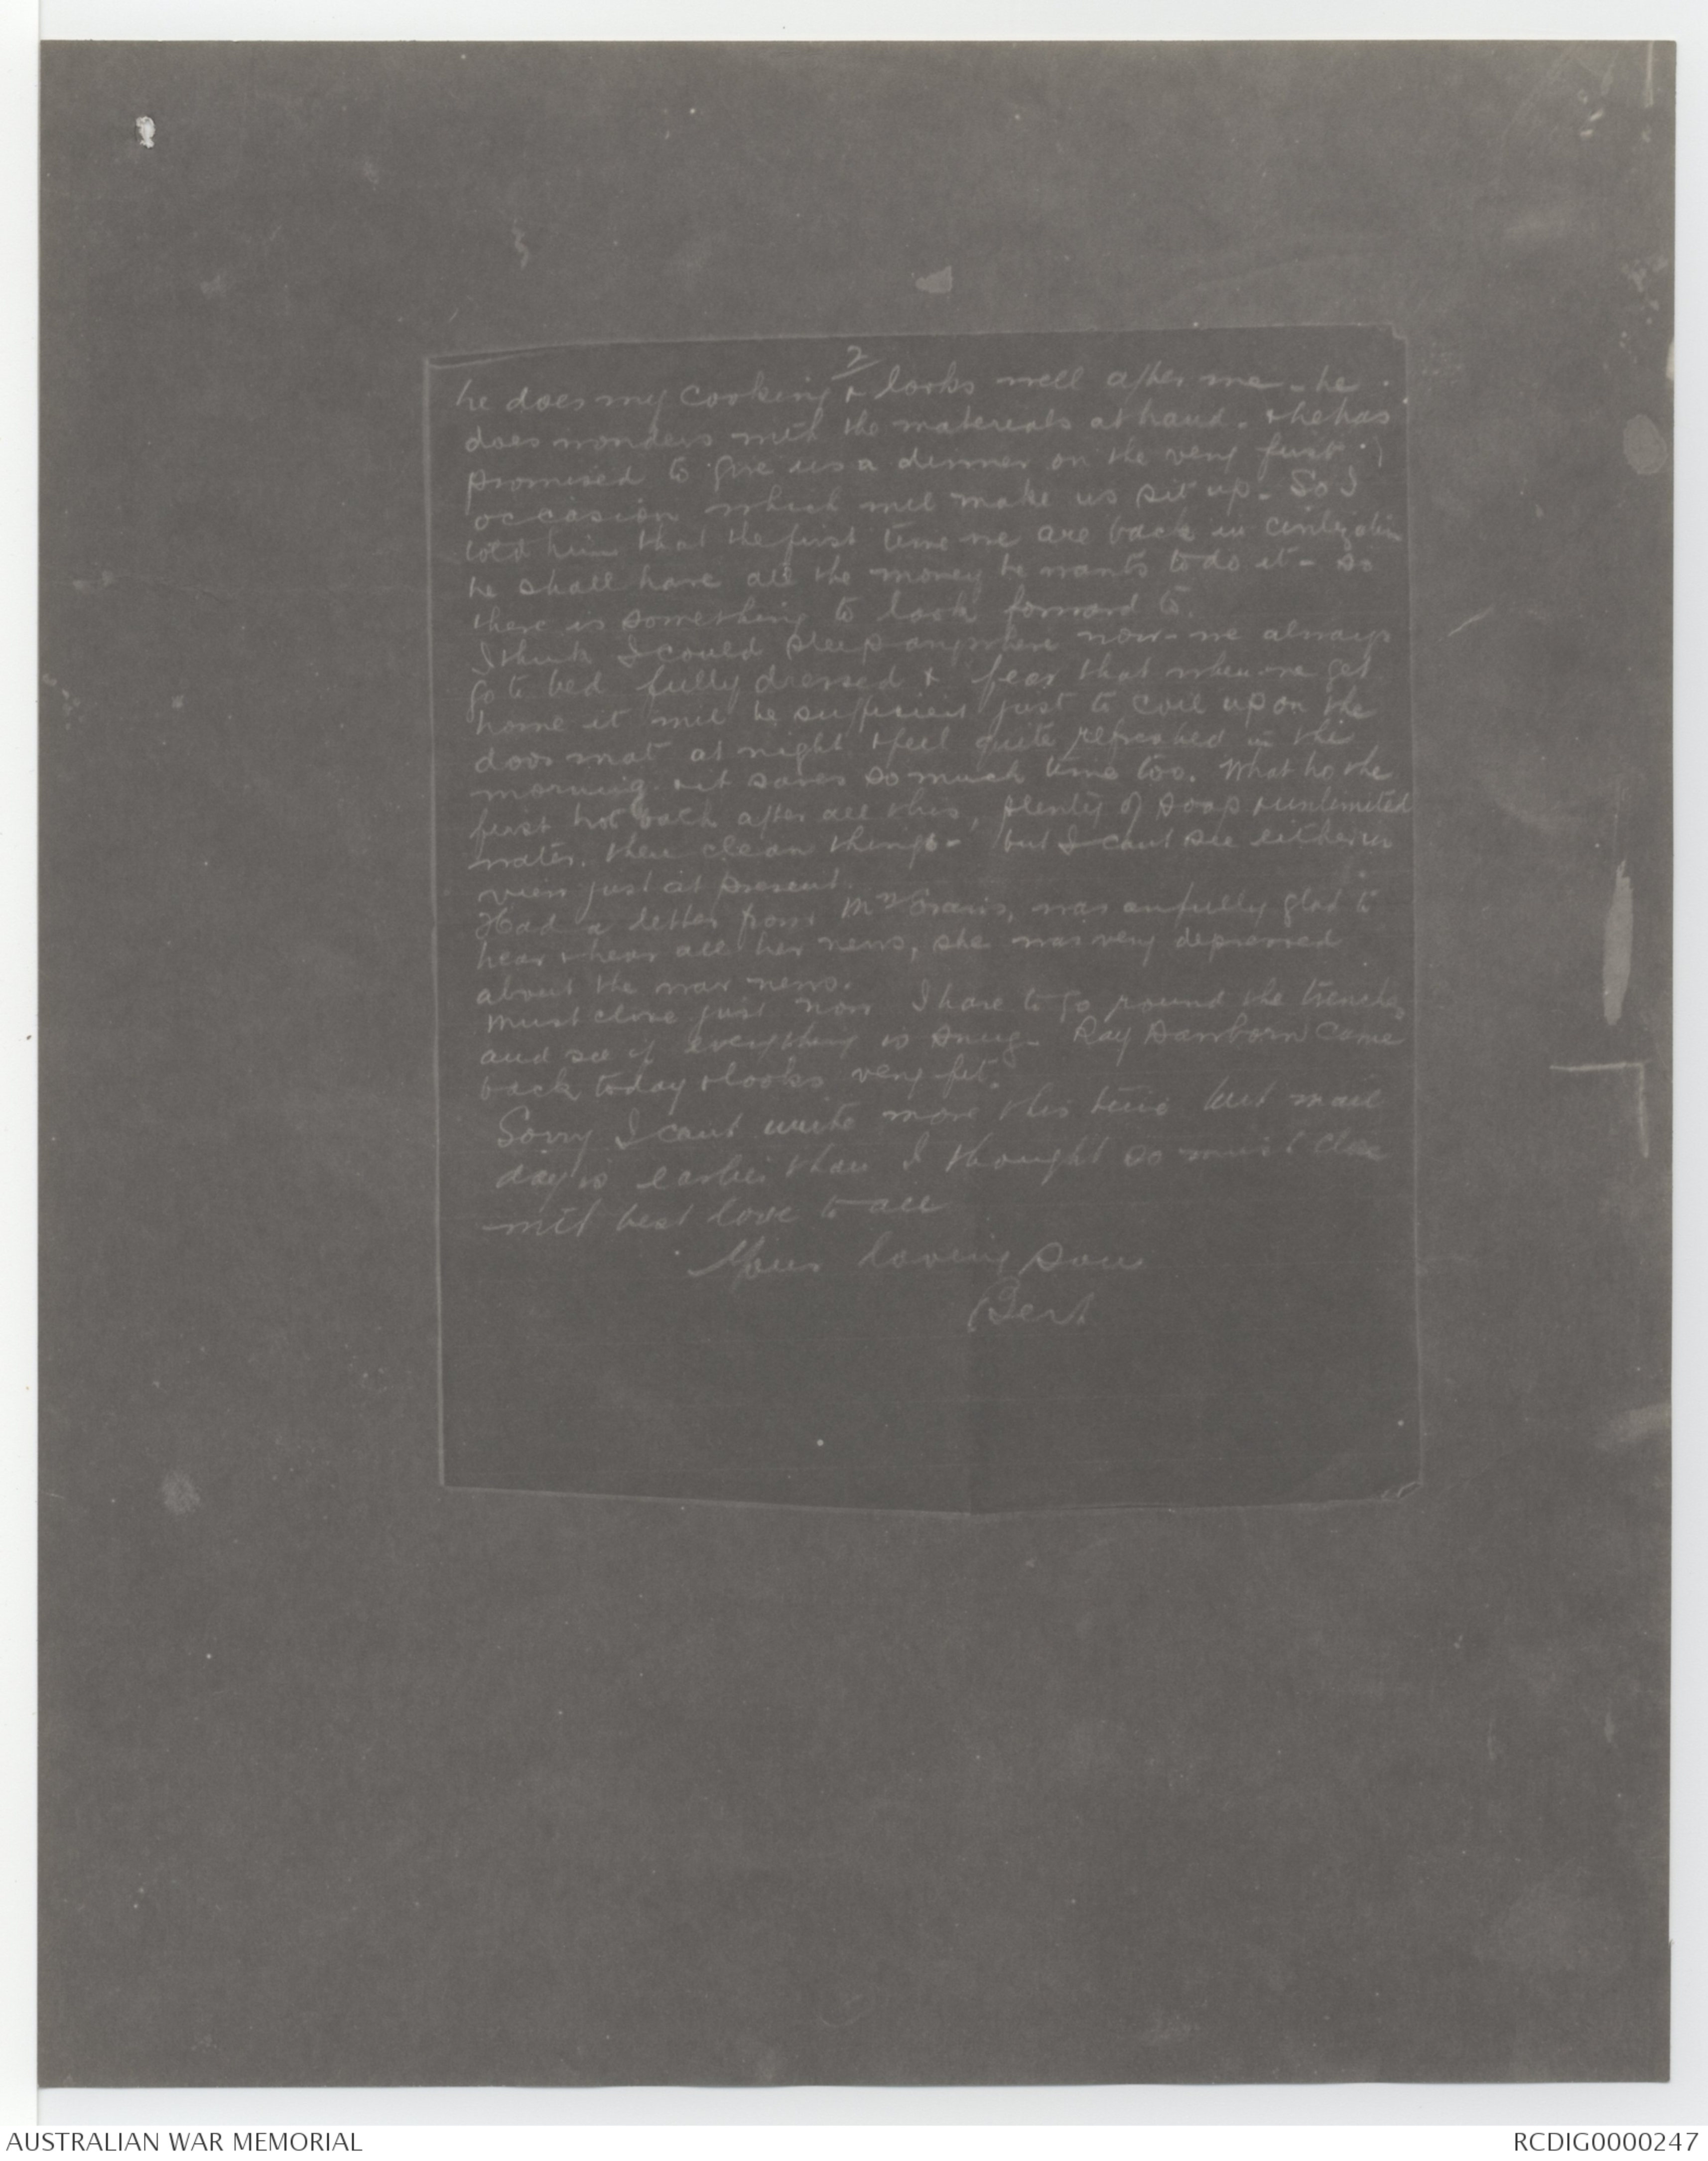 2
he does my cooking & looks well after me - he
does wonders with the materials at hand. & he has
promised to give us a dinner on the very first
occasion which will make us sit up - So I
told him that the first time we are back in civilization
he shall have all the money he wants to do it - so
there is something to look forward to.
I think I could sleep anywhere now - we always
go to bed fully dressed & fear that when we get
home it will be sufficient just to coil up on the
door mat at night & feel quite refreshed in the
morning. & it saves so much time too. What ho the
first hot bath after all this, plenty of soap & unlimited
water. then clean things - but I cant see either in
view just at present.
Had a letter from Mrs was awfully glad to
hear & hear all her news, she was very depressed
about the war news.
Must close just now I have to go round the trenches
and see if everything is snug - Ray Sanborn came
back today & looks very fit.
Sorry I cant write more this time but mail
day is earlier than I thought so must close
with best love to all
Your loving son
Bert
AUSTRALIAN WAR MEMORIAL
RCDIG0000247